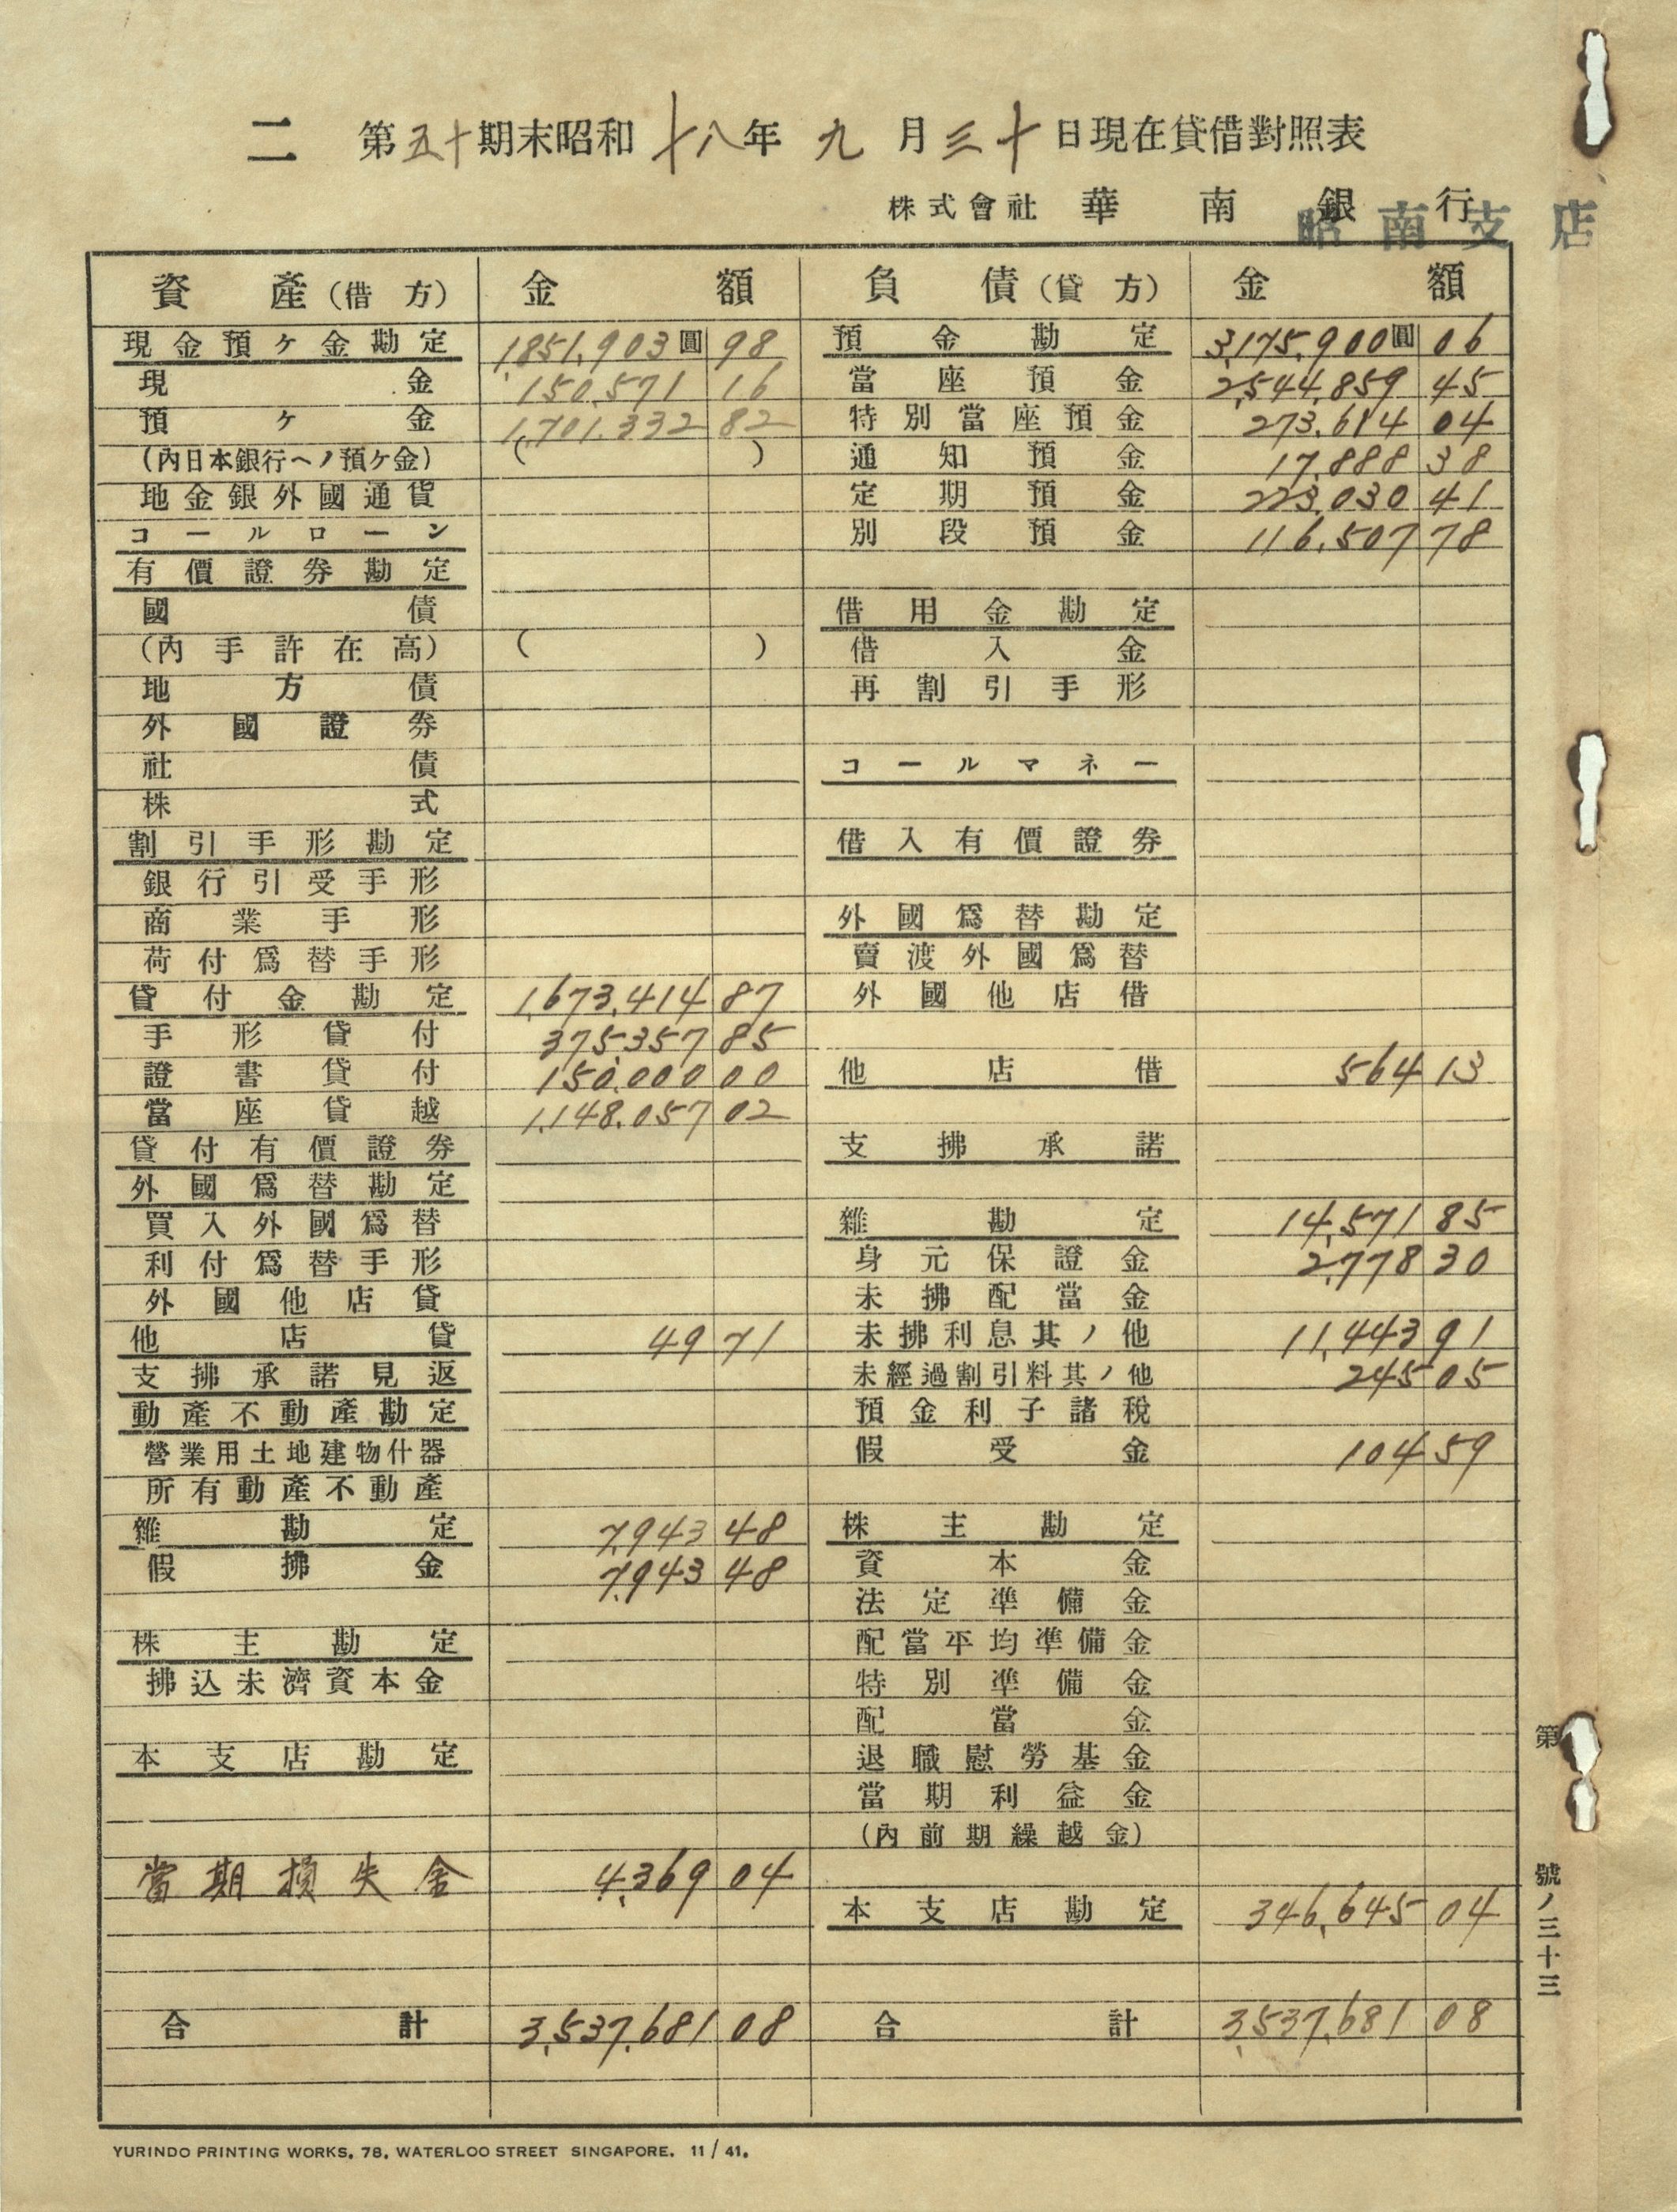 二 第五十期末昭和十八年九月三十日現在貸借對照表
株式會社 華南銀行
昭南支店
資產(借方) 金額 負債(貸方) 金額
現金預ヶ金勘定 1,851,903圓98 預金勘定 3,175,900圓06
現金 150,571 16 當座預金 2,544,859 45
預ヶ金 1,701,332 82 特別當座預金 273,614 04
(內日本銀行ヘノ預ケ金) ( ) 通知預金 17,888 38
地金銀外國通貨 定期預金 223,030 41
コールローン 別段預金 116,507 78
有價證券勘定
國債 借用金勘定
(內手許在高) ( ) 借入金
地方債 再割引手形
外國證券
社債 コールマネー
株式
割引手形勘定 借入有價證券
銀行引受手形
商業手形 外國爲替勘定
荷付爲替手形 賣渡外國爲替
貸付金勘定 1,673,414 87 外國他店借
手形貸付 375,357 85
證書貸付 150,000 00 他店借 564 13
當座貸越 1,148,057 02
貸付有價證券 支拂承諾
外國爲替勘定
買入外國爲替 雜勘定 14,571 85
利付爲替手形 身元保證金 2,778 30
外國他店貸 未拂配當金
他店貸 49 71 未拂利息其ノ他 11,443 91
支拂承諾見返 未經過割引料其ノ他 245 05
動產不動產勘定 預金利子諸稅
營業用土地建物什器 假受金 104 59
所有動產不動產
雜勘定 7,943 48 株主勘定
假拂金 7,943 48 資本金
法定準備金
株主勘定 配當平均準備金
拂込未濟資本金 特別準備金
配當金
本支店勘定 退職慰勞基金
當期利益金
(內前期繰越金)
當期損失金 4,369 04
本支店勘定 346,645 04
合計 3,537,681 08 合計 3,537,681 08
第 號ノ三十三
YURINDO PRINTING WORKS, 78, WATERLOO STREET SINGAPORE. 11/41.